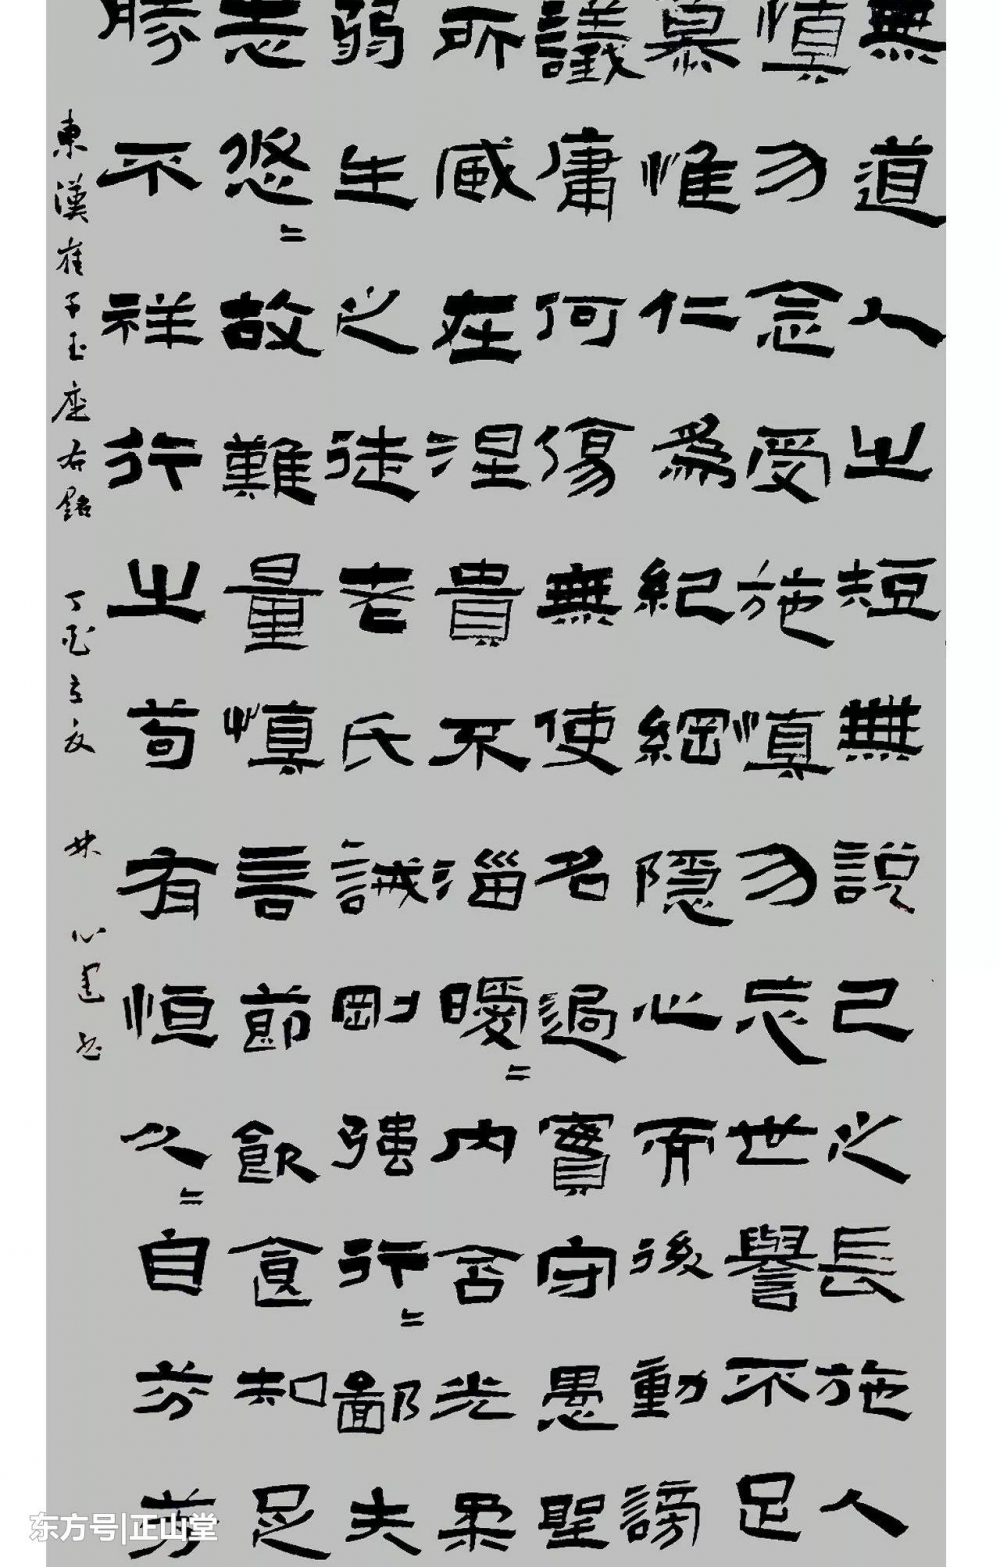 無道人之短無說己之長施人
慎勿念受施慎勿忘世譽不足
慕惟仁爲紀綱隱心而後動謗
議庸何傷無使名過實守愚聖
所臧在涅貴不淄曖=內含光柔
弱生之徒老氏誡剛强行=鄙夫
志悠=故難量慎言節飲食知足
勝不祥行之苟有恒久=自芬芳
東漢崔子玉座右銘 丁酉立夏 林
东方号|正山堂